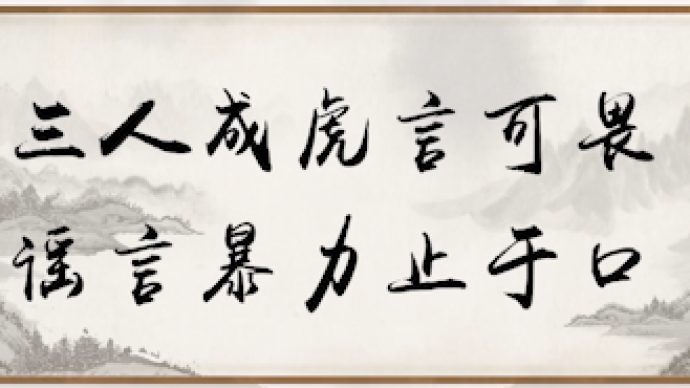 三人成虎言可畏
谣言暴力止于口